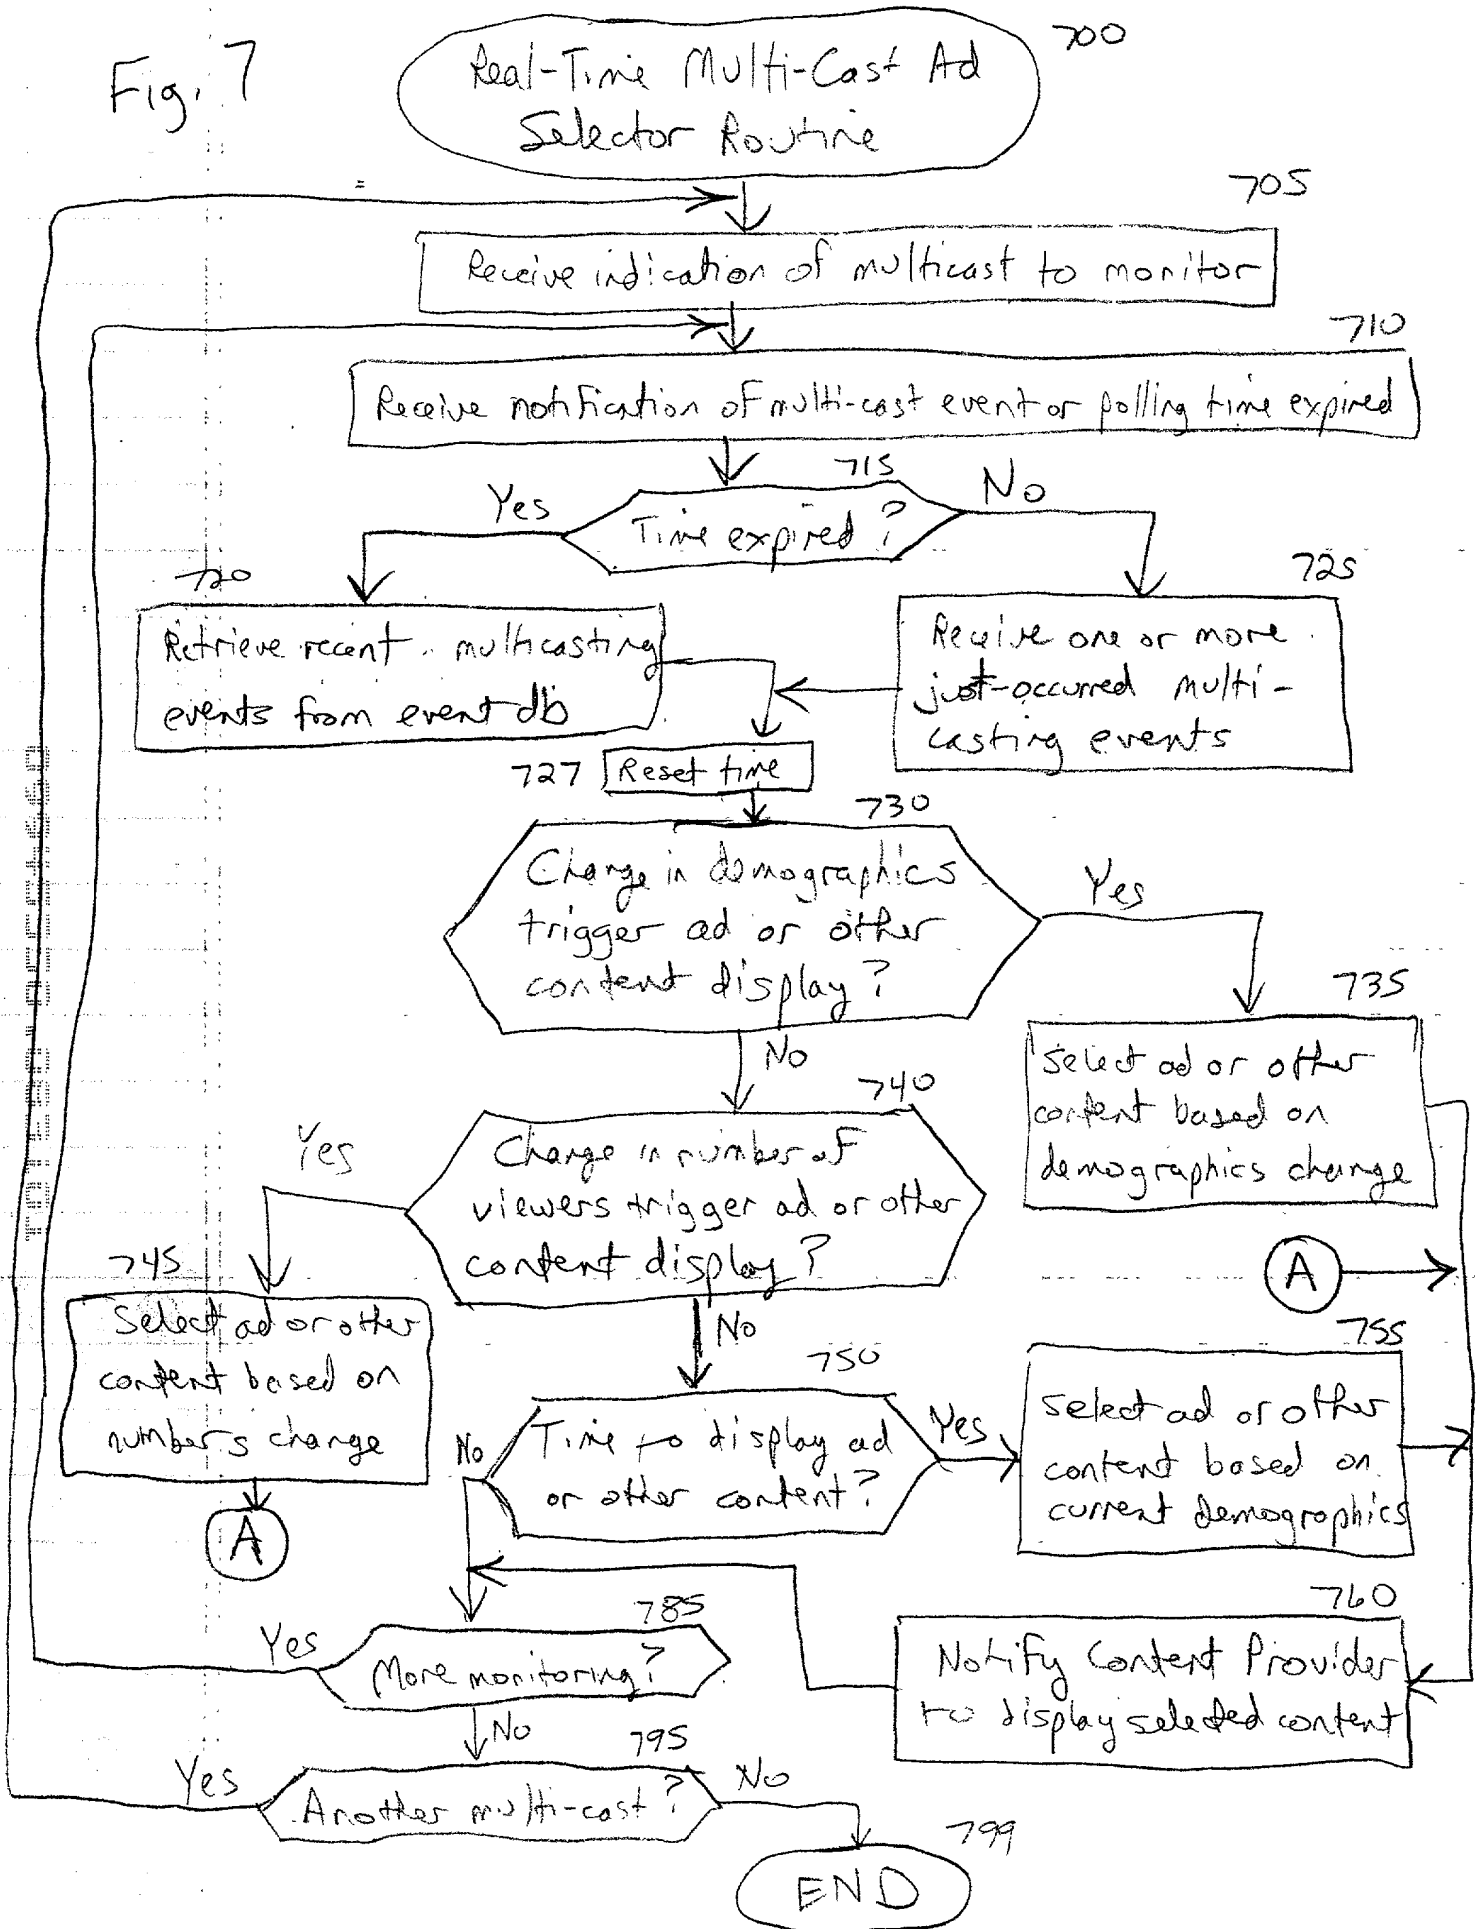 Fig. 7
700
Real-Time Multi-Cast Ad
Selector Routine
705
Receive indication of multicast to monitor
710
Receive notification of multi-cast event or polling time expired
715
Yes
No
Time expired?
720
725
Retrieve recent multicasting
events from event db
Receive one or more
just-occurred multi-
casting events
727
Reset time
730
Change in demographics
trigger ad or other
content display?
Yes
No
735
Select ad or other
content based on
demographics change
740
Yes
Change in number of
viewers trigger ad or other
content display?
No
745
Select ad or other
content based on
numbers change
A
A
750
No
Time to display ad
or other content?
Yes
755
Select ad or other
content based on
current demographics
760
Notify Content Provider
to display selected content
785
Yes
More monitoring?
No
795
Yes
Another multi-cast?
No
799
END